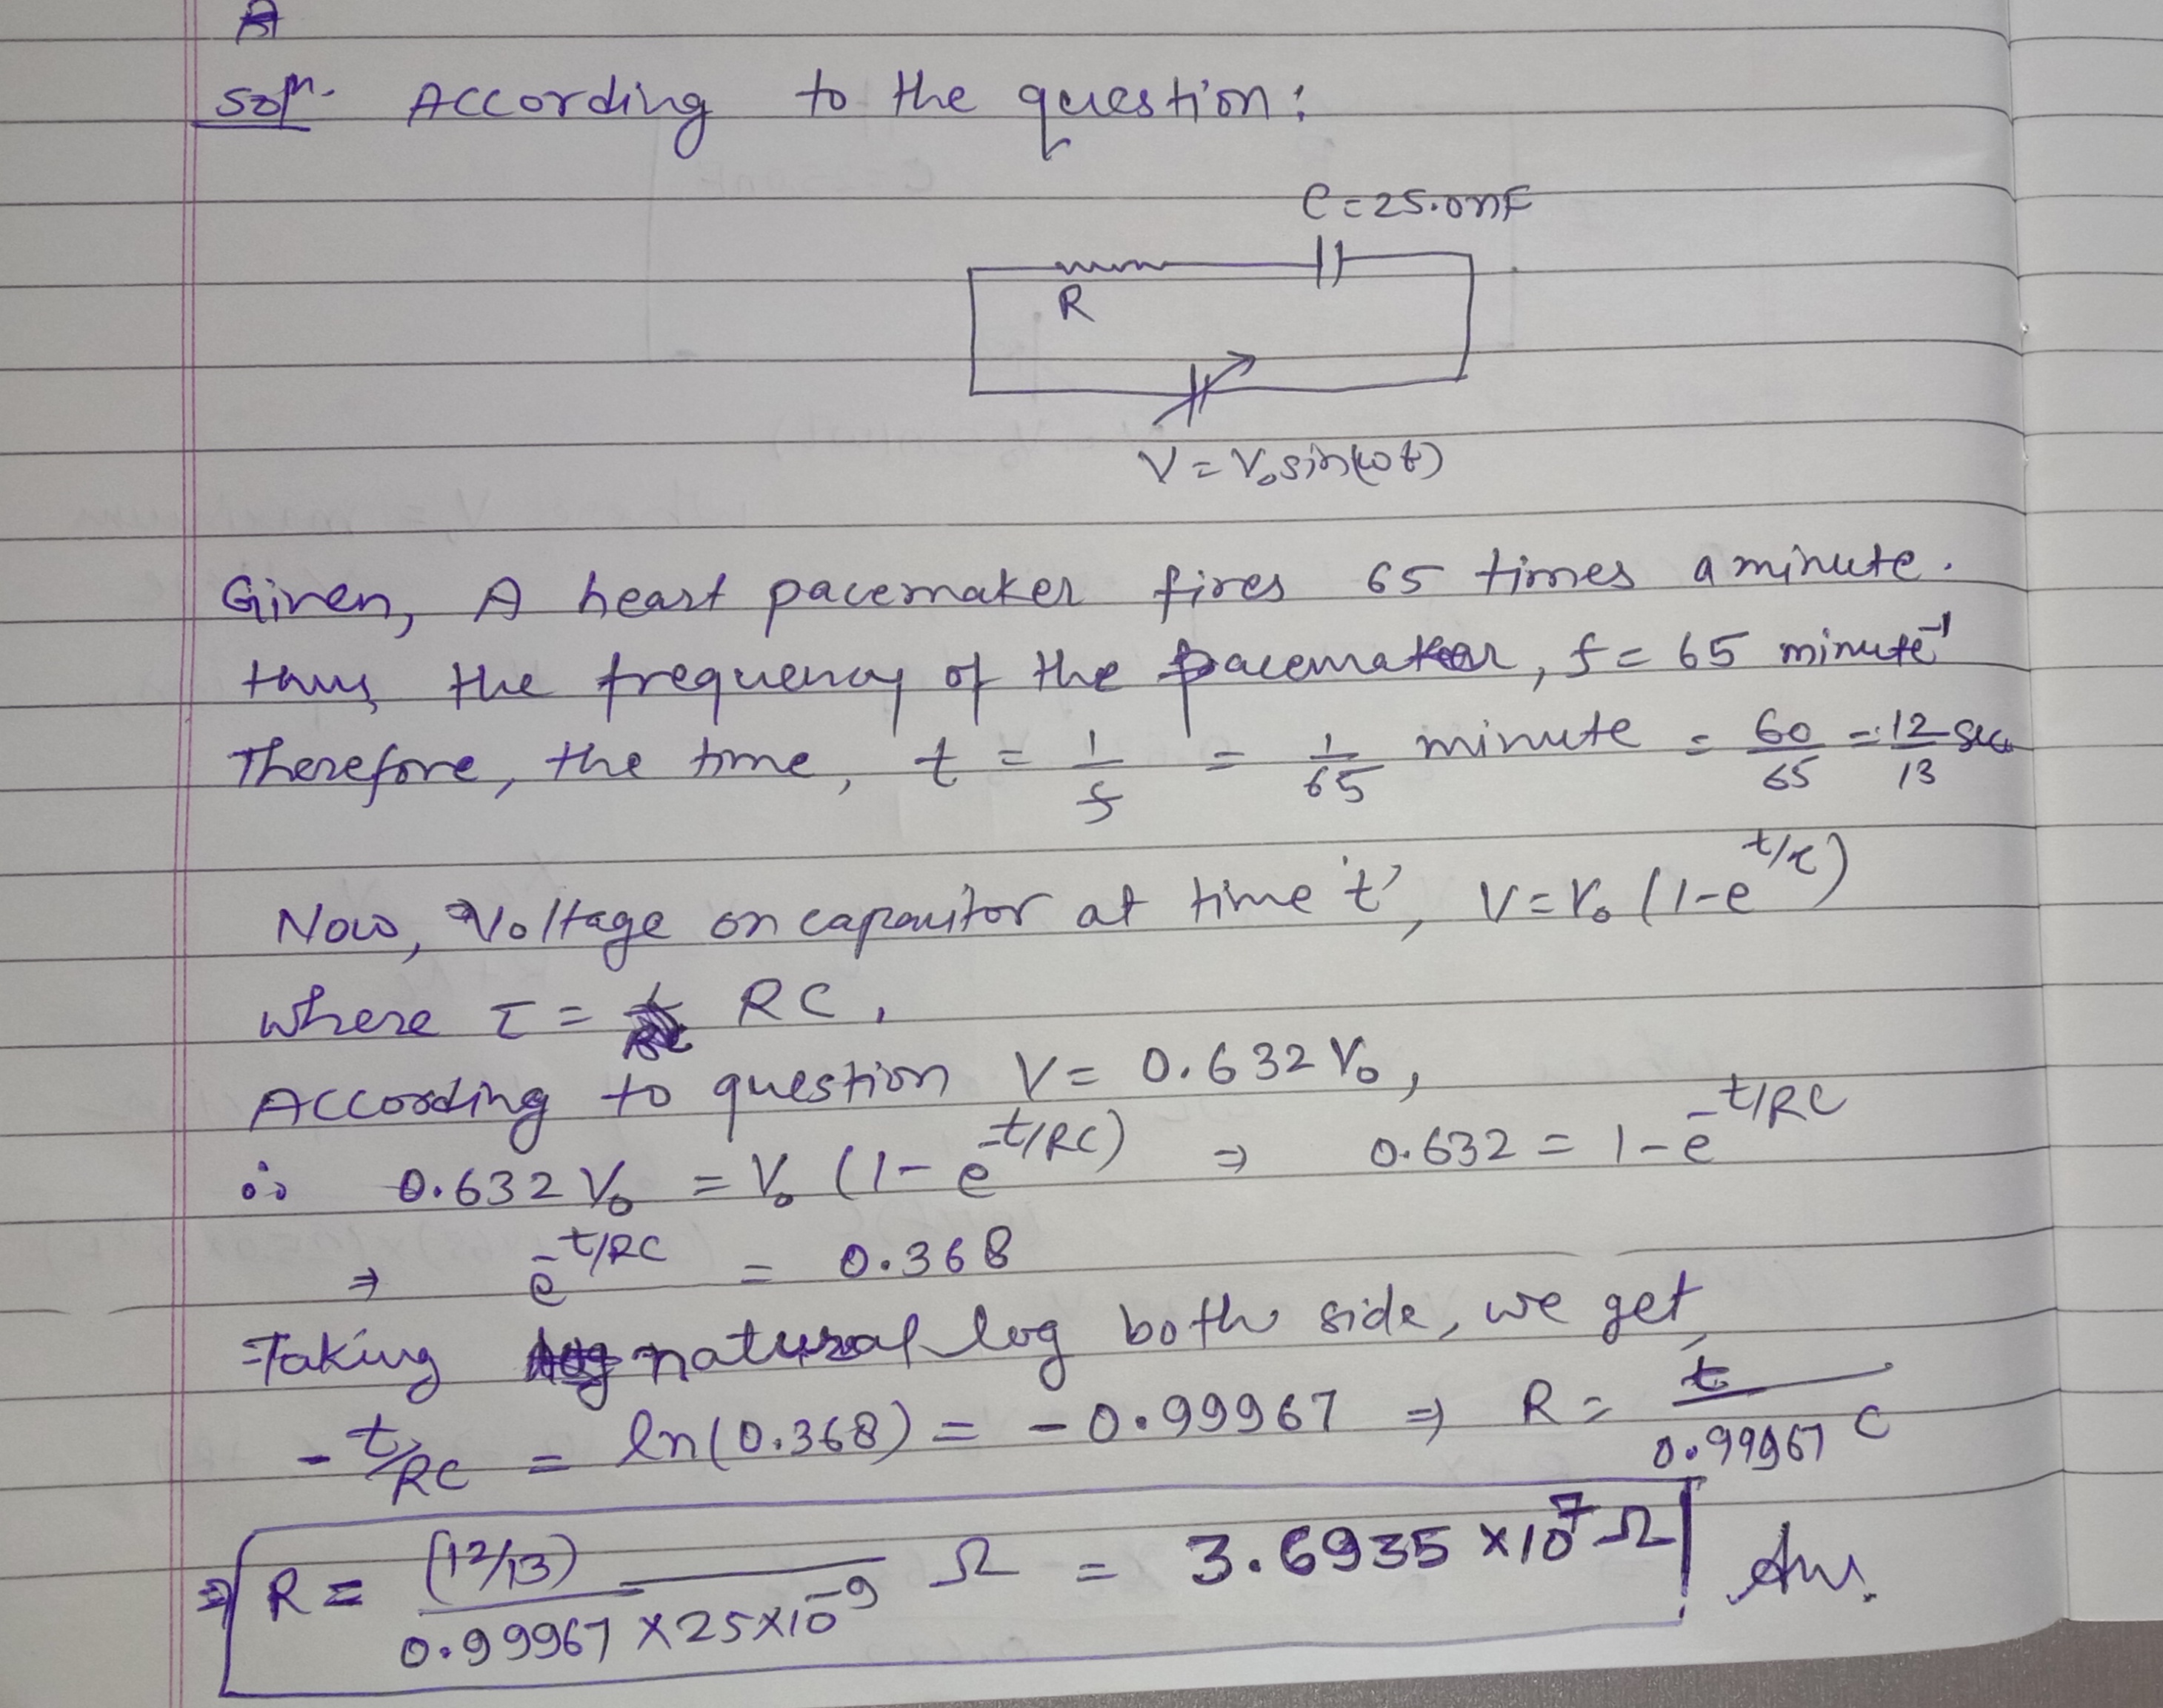 A
Solⁿ. According to the question:
C=25.0nF
R
V = V₀sin(ωt)
Given, A heart pacemaker fires 65 times a minute.
thus the frequency of the pacemaker, f = 65 minute⁻¹
Therefore, the time, t = 1/f = 1/65 minute = 60/65 = 12/13 sec.
Now, Voltage on capacitor at time 't', V=V₀(1-e^t/τ)
where τ = RC,
According to question V = 0.632 V₀,
∴ 0.632 V₀ = V₀ (1 - e^-t/RC) ⇒ 0.632 = 1 - e^-t/RC
⇒ e^-t/RC = 0.368
Taking natural log both side, we get,
- t/RC = ln(0.368) = -0.99967 ⇒ R = t/0.99967 C
⇒ R = (12/13)/0.99967 × 25×10⁻⁹ Ω = 3.6935 ×10⁷ Ω Ans.